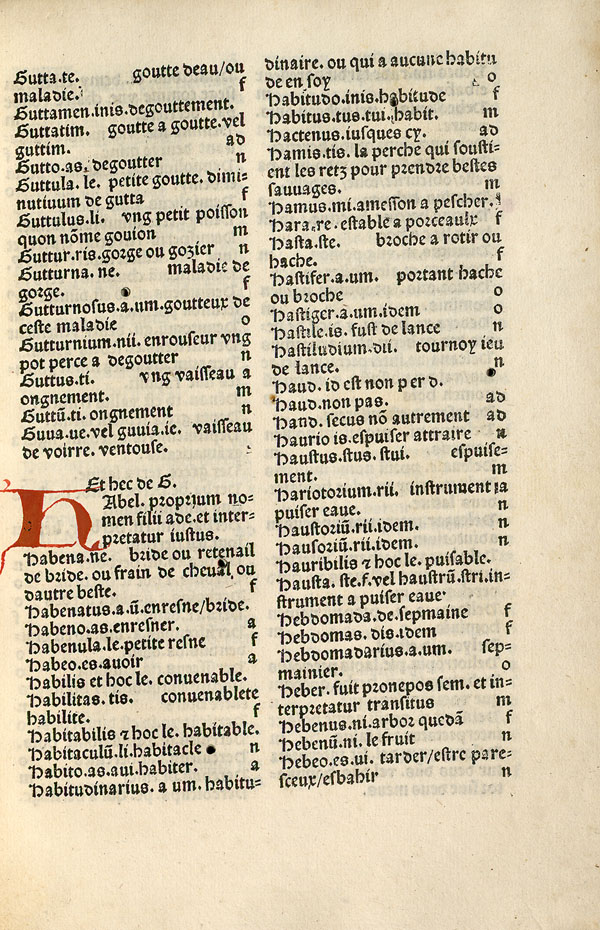 Gutta.te. goutte deau/ou
maladie. f
Guttamen.inis.degouttement.
Guttatim. goutte a goutte.vel
guttim. ad
Gutto.as.degoutter n
Guttula.le. petite goutte. dimi-
nutiuum de gutta f
Guttulus.li. vng petit poisson
quon nõme gouion m
Guttur.ris.gorge ou gozier n
Gutturna.ne. maladie de
gorge. f
Gutturnosus.a.um.goutteux de
ceste maladie o
Gutturnium.nii. enrouseur vng
pot perce a degoutter n
Guttus.ti. vng vaisseau a
ongnement. m
Guttũ.ti. ongnement n
Guua.ue.vel guuia.ie. vaisseau
de voirre. ventouse.
Et hec de G.
HAbel. proprium no-
men filii ade.et inter-
pretatur iustus.
Habena.ne. bride ou retenail
de bride. ou frain de cheual, ou
dautre beste. f
Habenatus.a.ũ.enresne/bride.
Habeno.as.enresner. a
Habenula.le.petite resne f
Habeo.es.auoir a
Habilis et hoc le. conuenable.
Habilitas.tis. conuenablete
habilite. f
Habitabilis ⁊ hoc le. habitable.
Habitaculũ.li.habitacle n
Habito.as.aui.habiter. a
Habitudinarius. a um. habitu-
dinaire. ou qui a aucune habitu
de en soy o
Habitudo.inis.habitude f
Habitus.tus.tui.habit. m
Hactenus.iusques cy. ad
Hamis.tis. la perche qui sousti-
ent les retz pour prendre bestes
sauuages. m
Hamus.mi.amesson a pescher.
Hara.re. estable a porceaulx f
Hasta.ste. broche a rotir ou
hache. f
Hastifer.a.um. portant hache
ou broche o
Hastiger.a.um.idem o
Hastile.is. fust de lance n
Hastiludium.dii. tournoy ieu
de lance. n
Haud. id est non per d.
Haud.non pas. ad
Hand. secus nõ autrement ad
Haurio is.espuiser attraire n
Haustus.stus.stui. espuise-
ment. m
Hariotorium.rii. instrument a
puiser eaue. n
Haustoriũ.rii.idem. n
Hausoriũ.rii.idem. n
Hauribilis ⁊ hoc le. puisable.
Hausta. ste.f.vel haustrũ.stri.in-
strument a puiser eaue
Hebdomada.de.sepmaine f
Hebdomas. dis.idem f
Hebdomadarius.a.um. sep-
mainier. o
Heber. fuit pronepos sem. et in-
terpretatur transitus m
Hebenus.ni.arbor quedã f
Hebenũ.ni. le fruit n
Hebeo.es.ui. tarder/estre pare-
sceux/esbahir n